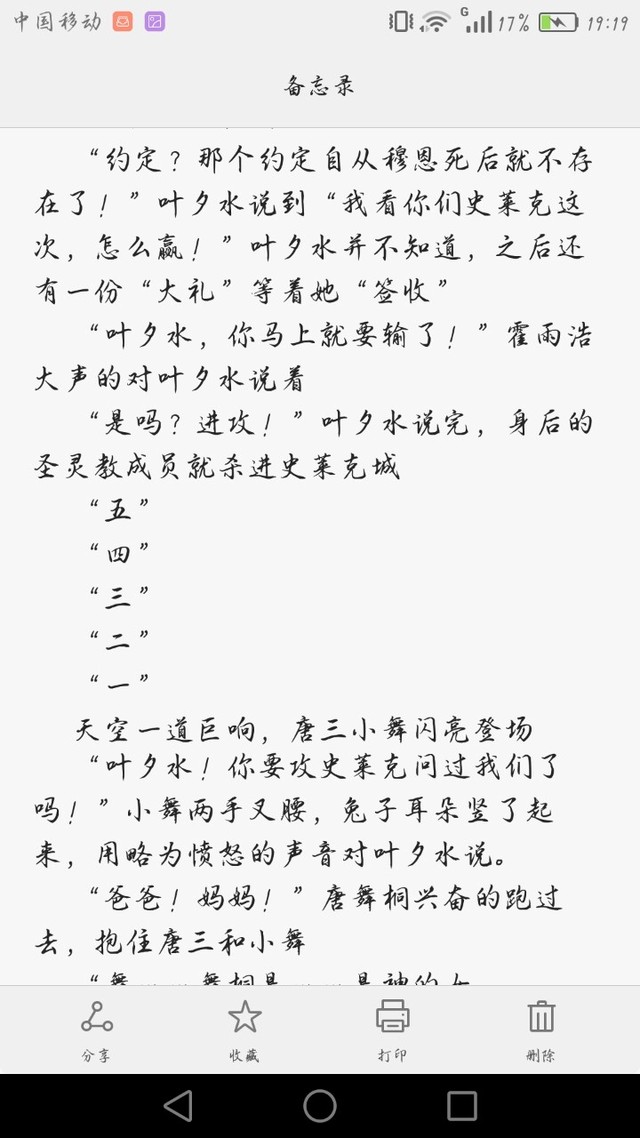 中国移动 G 17% 19:19
备忘录
“约定？那个约定自从穆恩死后就不存
在了！”叶夕水说到“我看你们史莱克这
次，怎么赢！”叶夕水并不知道，之后还
有一份“大礼”等着她“签收”
“叶夕水，你马上就要输了！”霍雨浩
大声的对叶夕水说着
“是吗？进攻！”叶夕水说完，身后的
圣灵教成员就杀进史莱克城
“五”
“四”
“三”
“二”
“一”
天空一道巨响，唐三小舞闪亮登场
“叶夕水！你要攻史莱克问过我们了
吗！”小舞两手叉腰，兔子耳朵竖了起
来，用略为愤怒的声音对叶夕水说。
“爸爸！妈妈！”唐舞桐兴奋的跑过
去，抱住唐三和小舞
分享 收藏 打印 删除